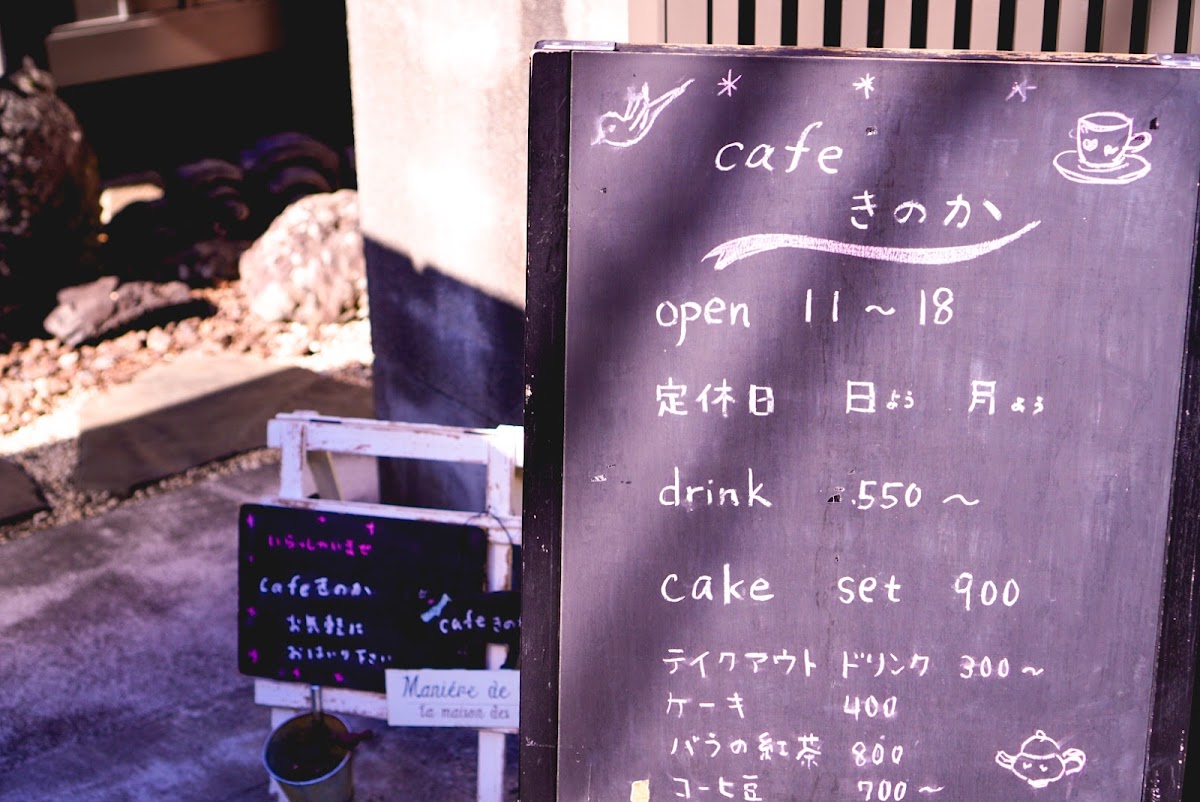 cafe
きのか
open 11〜18
定休日 日よう 月よう
drink 550〜
cake set 900
テイクアウト ドリンク 300〜
ケーキ 400
バラの紅茶 800
コーヒー豆 700〜
いらっしゃいませ
cafeきのか
お気軽に
おはいり下さい
cafe きの
Maniére de
la maison des